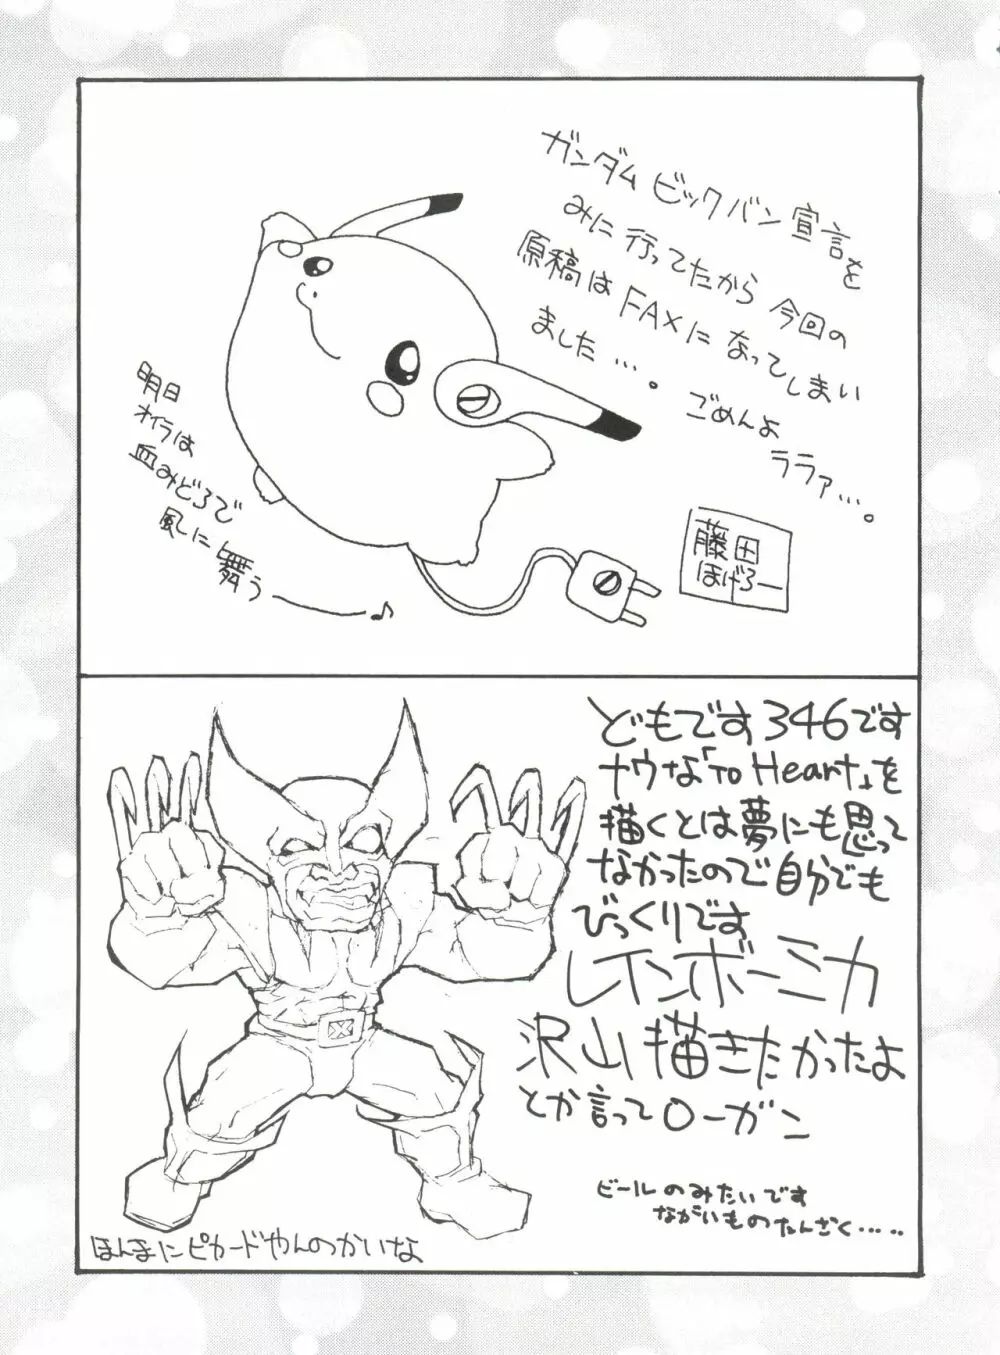 ガンダム ビックバン宣言を
みに行ってたから 今回の
原稿は FAXになってしまい
ました…。 ごめんよ
ララァ…。
明日
オイラは
血みどろで
風に舞うー♪
藤田
ほげろー
どもです346です
ナウな「To Heart」を
描くとは夢にも思って
なかったので自分でも
びっくりです
レインボーミカ
沢山描きたかったよ
とか言ってローガン
ビールのみたいです
ながいものたんざく‥‥
ほんまにピカードやんのかいな